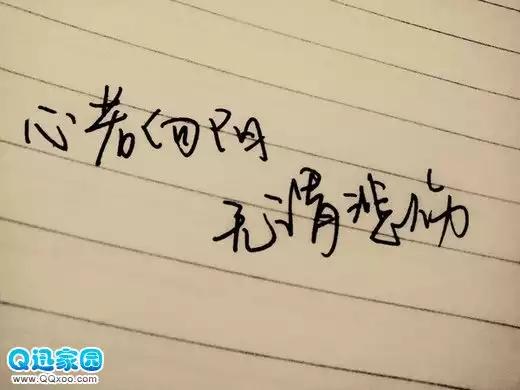 心若向阳
无谓悲伤
Q迅家园
www.QQxoo.com